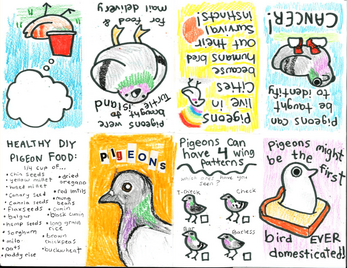 CANCER!
to identify
be taught
Pigeons can
Instincts!
Survival
out their
humans bred
because
Cities
live in
Pigeons
mail delivery
for food &
Turtle island
brought to
Pigeons were
HEALTHY DIY
PIGEON FOOD:
1/4 cup of...
• chia seeds
• yellow millet
• canary seed
• canola seeds
• flaxseeds
• bulgur
• hemp seeds
• sorghum
• milo
• oats
• paddy rice
• dried
oregano
• red lentils
• mung
beans
• cumin
• black cumin
• long grain
rice
• brown
chickpeas
• buckwheat
PIGEONS
Pigeons can
have 4 wing
patterns
which ones have you
seen?
T-Check
Check
Bar
Barless
Pigeons might
be the first
bird EVER
domesticated!